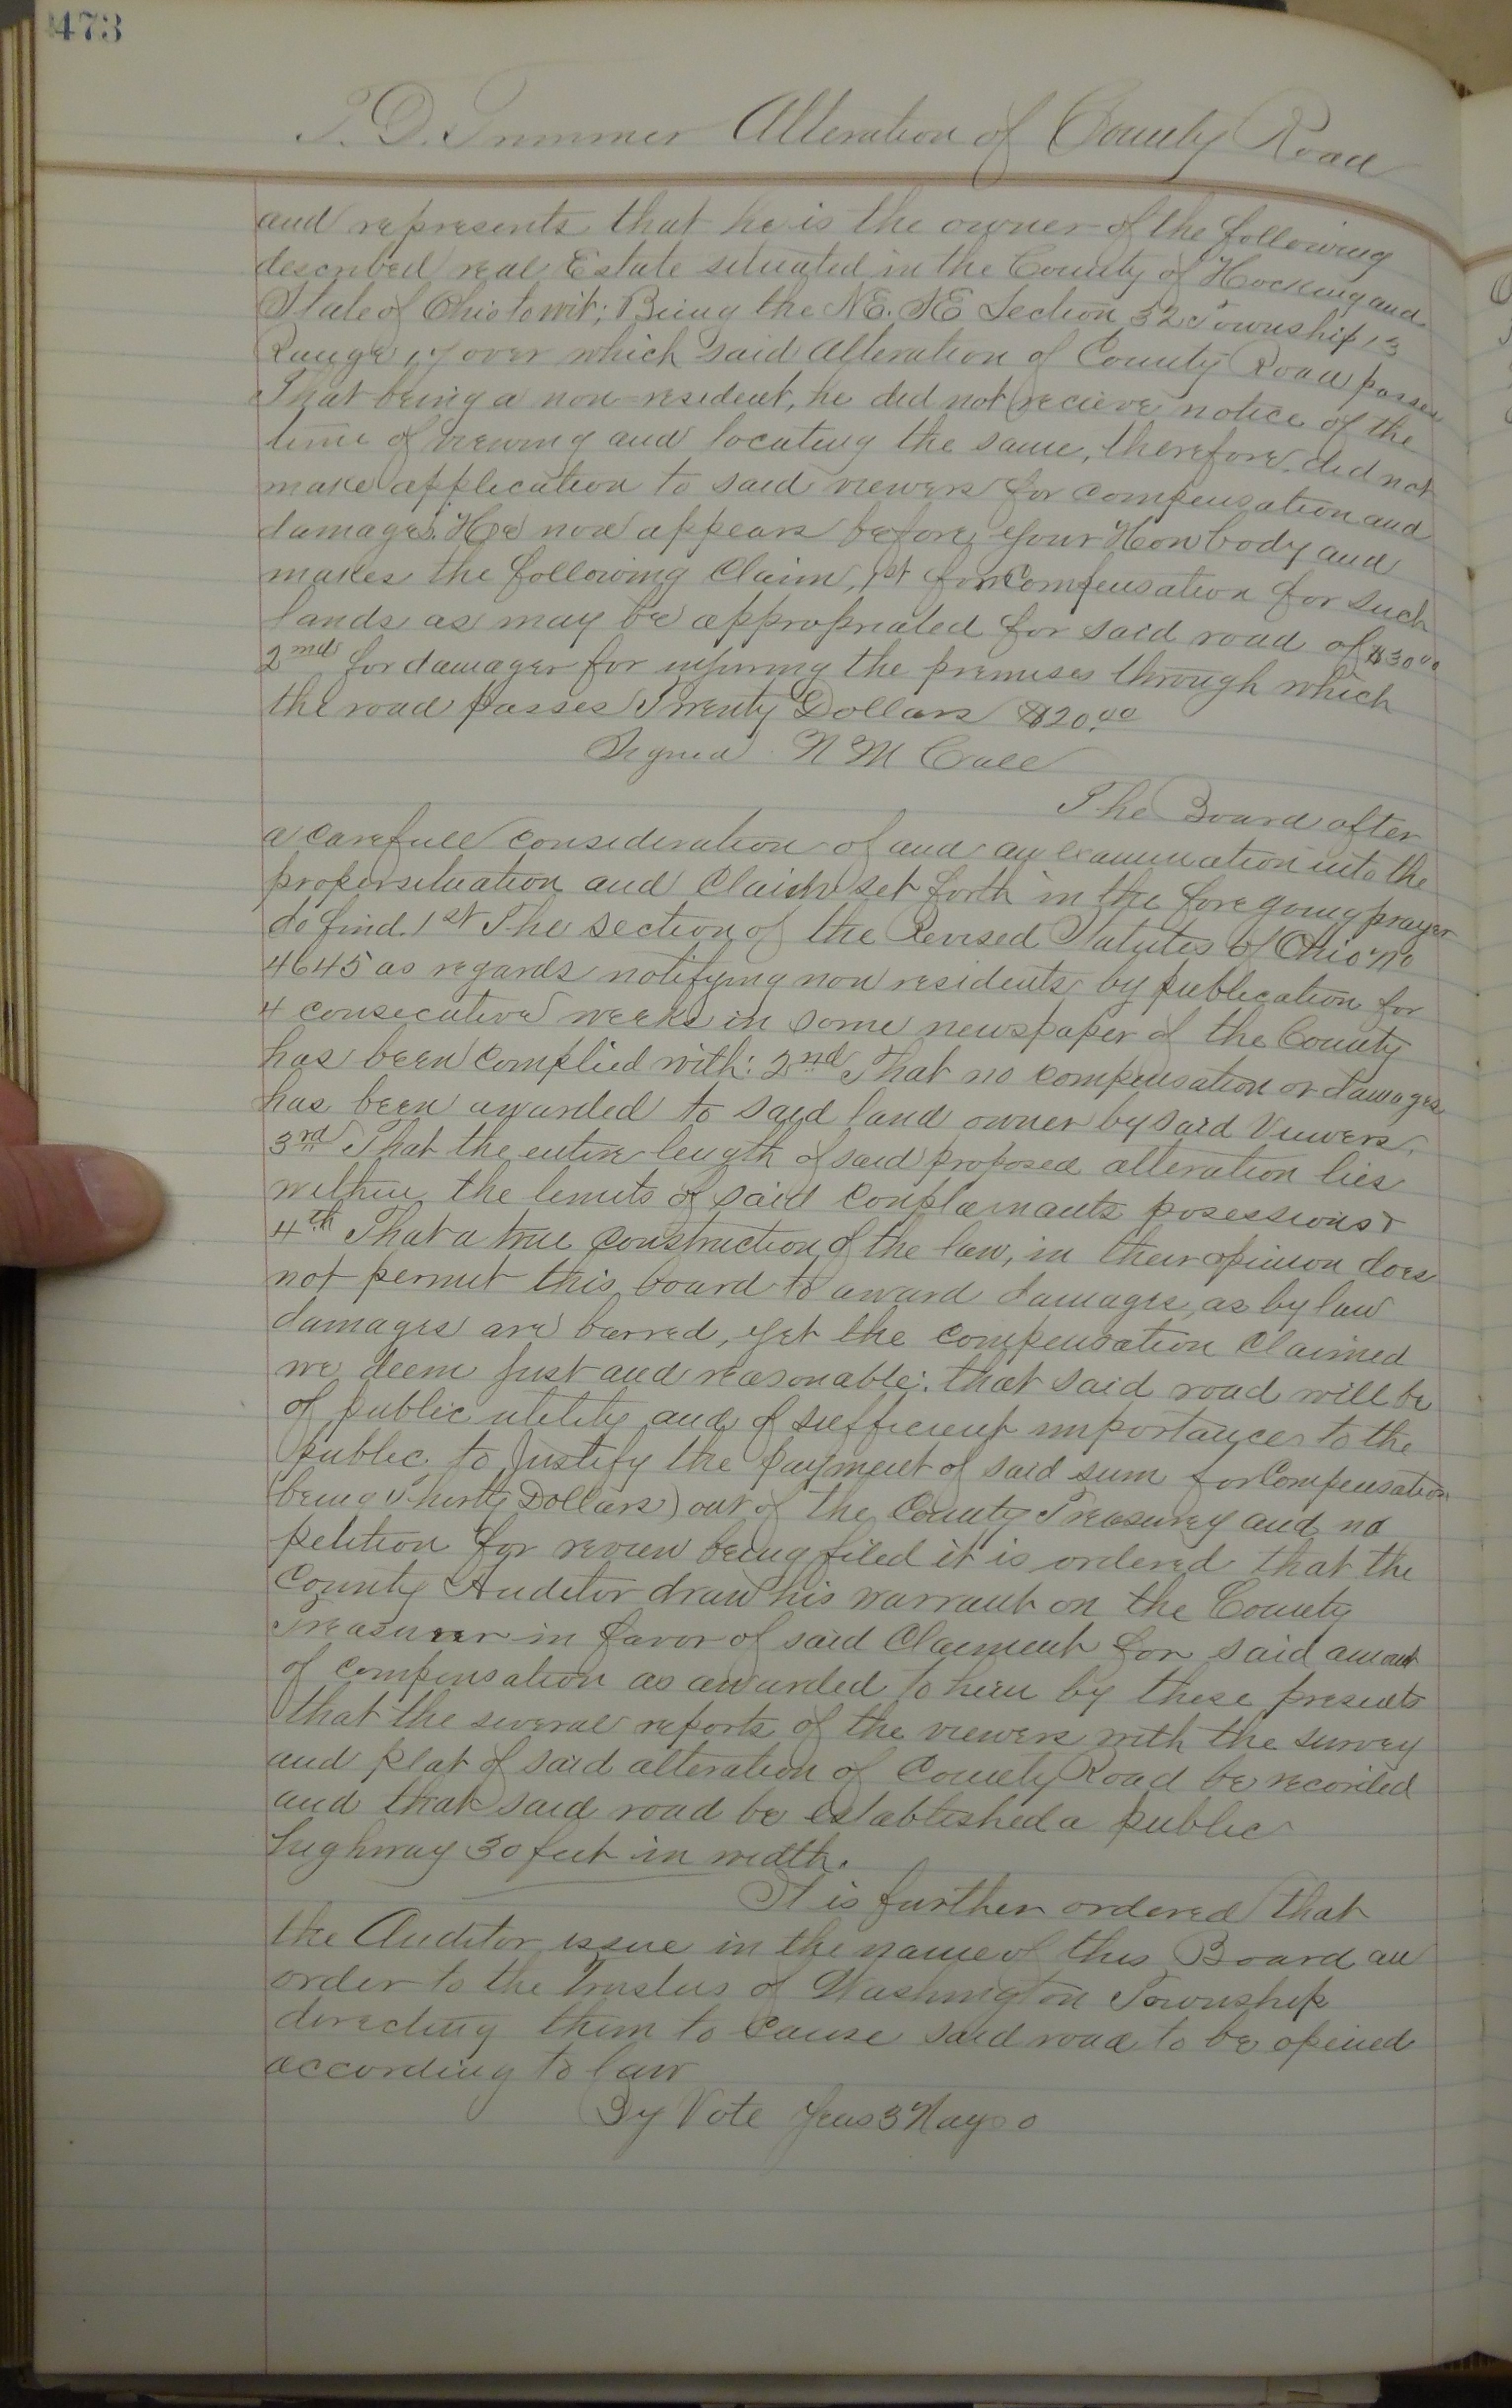 473
T. D. Trimmer Alteration of County Road
and represents that he is the owner of the following
described real Estate situated in the County of Hocking and
State of Ohio to wit; Being the N.E. SE Section 32 Township 13
Range 17 over which said Alteration of County Road passes
That being a non-resident, he did not recieve notice of the
time of viewing and locating the same, therefore did not
make application to said viewers for compensation and
damages. He now appears before your Hon body and
makes the following Claim, 1st for Compensation for such
lands as may be appropriated for said road of $30.00
2nd for damages for injuring the premises through which
the road passes Twenty Dollars $20.00
Signed N M Call
The Board after
a carefull consideration of and an examination into the
proper situation and Claim set forth in the foregoing prayer
do find. 1st The section of the Revised Statutes of Ohio No
4645 as regards notifying non residents by publication for
4 consecutive weeks in some newspaper of the County
has been complied with: 2nd That no compensation or damages
has been awarded to said land owner by said Viewers.
3rd That the entire length of said proposed alteration lies
within the limits of said complainants posessions &
4th That a true construction of the law, in their opinion does
not permit this board to award damages, as by law
damages are barred, yet the compensation claimed
we deem just and reasonable: that said road will be
of public utility and of sufficient importance to the
public to justify the payment of said sum for Compensation
(being Thirty Dollars) out of the County Treasurey and no
petition for review being filed it is ordered that the
County Auditor draw his warrant on the County
Treasurer in favor of said Claiment for said amount
of compensation as awarded to him by these presents
that the several reports of the viewers with the survey
and plat of said alteration of County Road be recorded
and that said road be established a public
highway 30 feet in width.
It is further ordered that
the Auditor issue in the name of this Board an
order to the trustees of Washington Township
directing them to cause said road to be opened
according to law
By Vote Yeas 3 Nays 0